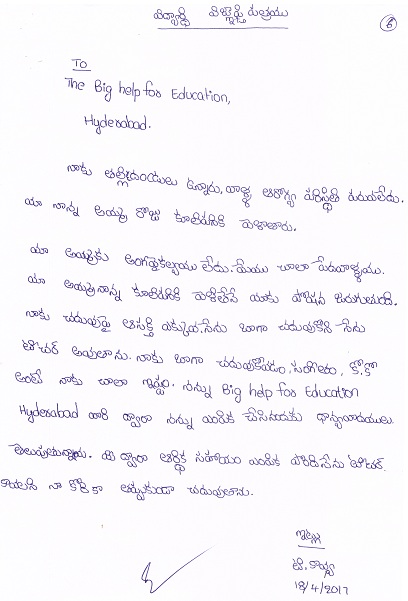 విద్యార్థి విజ్ఞప్తి పత్రము
6
To
The Big help for Education,
Hyderabad.
నాకు తల్లిదండ్రులు ఉన్నారు, వాళ్ళ ఆరోగ్య పరిస్థితి పరవాలేదు.
మా నాన్న అమ్మ రోజు కూలిపనికి వెళతారు.
మా అమ్మకు అంగవైకల్యము లేదు. మేము చాలా పేదవాళ్ళము.
మా అమ్మనాన్న కూలిపనికి వెళితేనే మాకు పోషన జరుగుతుంది.
నాకు చదువుపై ఆసక్తి ఎక్కువ. నేను బాగా చదువుకొని నేను
టీచర్ అవుతాను. నాకు బాగా చదువుకోవడం, సంగీతం, కో.కో
అంటే నాకు చాలా ఇష్టం. నన్ను Big help for Education
Hyderabad వారి ద్వారా నన్ను ఎంపిక చేసినందుకు ధాన్యవాదములు
తెలుపుతున్నాను. ఈ ద్వారా ఆర్థిక సహాయం ఎంపిక పొంది నేను టీచర్.
కావాలని నా కోరిక తప్పకుండా చదువుతాను.
ఇట్లు
టి. కావ్య
18/4/2017